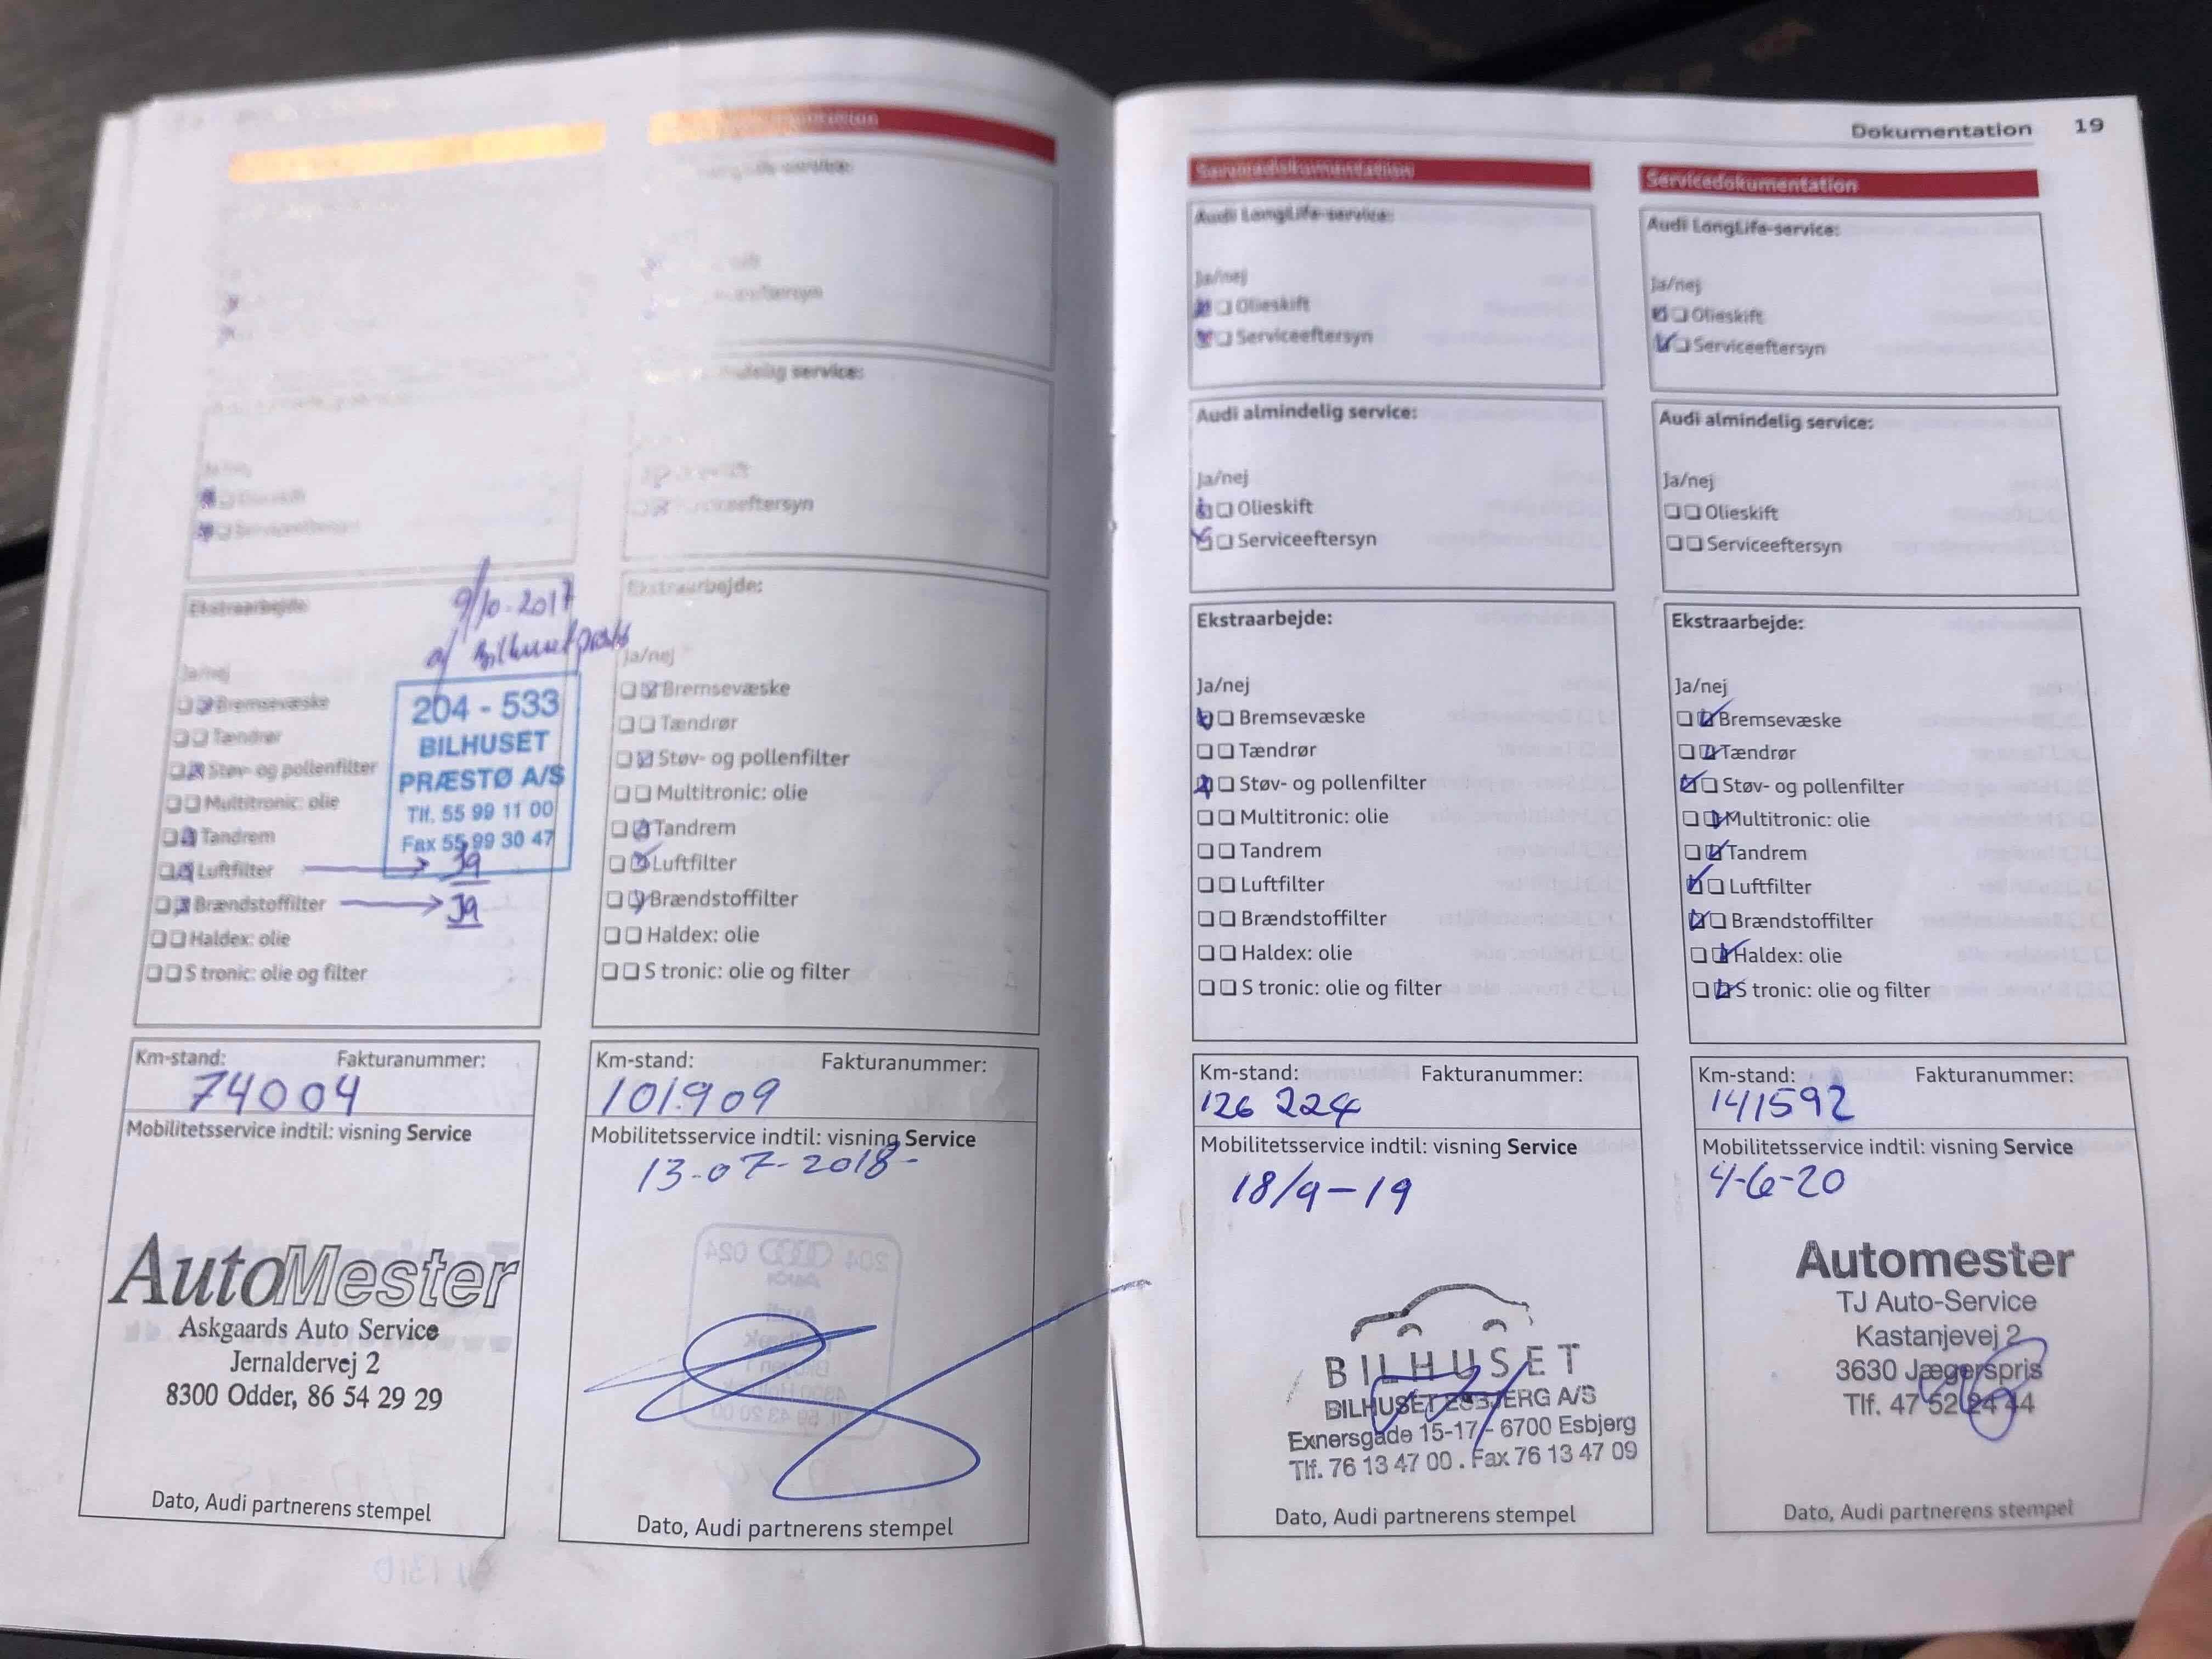 Ekstraarbejde
9/10-2017
af Bilhuset Præstø
Ja/nej
Bremsevæske
Tændrør
Støv- og pollenfilter
Multitronic: olie
Tandrem
Luftfilter → Ja
Brændstoffilter → Ja
Haldex: olie
S tronic: olie og filter
204 - 533
BILHUSET
PRÆSTØ A/S
Tlf. 55 99 11 00
Fax 55 99 30 47
Km-stand: Fakturanummer:
74004
Mobilitetsservice indtil: visning Service
AutoMester
Askgaards Auto Service
Jernaldervej 2
8300 Odder, 86 54 29 29
Dato, Audi partnerens stempel
service:
eftersyn
service:
Serviceeftersyn
Ekstraarbejde:
Ja/nej
Bremsevæske
Tændrør
Støv- og pollenfilter
Multitronic: olie
Tandrem
Luftfilter
Brændstoffilter
Haldex: olie
S tronic: olie og filter
Km-stand: Fakturanummer:
101.909
Mobilitetsservice indtil: visning Service
13-07-2018-
Dato, Audi partnerens stempel
Dokumentation 19
Servicedokumentation
Audi LongLife-service:
Ja/nej
Olieskift
Serviceeftersyn
Audi almindelig service:
Ja/nej
Olieskift
Serviceeftersyn
Ekstraarbejde:
Ja/nej
Bremsevæske
Tændrør
Støv- og pollenfilter
Multitronic: olie
Tandrem
Luftfilter
Brændstoffilter
Haldex: olie
S tronic: olie og filter
Km-stand: Fakturanummer:
126 224
Mobilitetsservice indtil: visning Service
18/9-19
BILHUSET
BILHUSET ESBJERG A/S
Exnersgade 15-17 - 6700 Esbjerg
Tlf. 76 13 47 00 . Fax 76 13 47 09
Dato, Audi partnerens stempel
Servicedokumentation
Audi LongLife-service:
Ja/nej
Olieskift
Serviceeftersyn
Audi almindelig service:
Ja/nej
Olieskift
Serviceeftersyn
Ekstraarbejde:
Ja/nej
Bremsevæske
Tændrør
Støv- og pollenfilter
Multitronic: olie
Tandrem
Luftfilter
Brændstoffilter
Haldex: olie
S tronic: olie og filter
Km-stand: Fakturanummer:
141592
Mobilitetsservice indtil: visning Service
4-6-20
Automester
TJ Auto-Service
Kastanjevej 2
3630 Jægerspris
Tlf. 47 52 24 44
Dato, Audi partnerens stempel